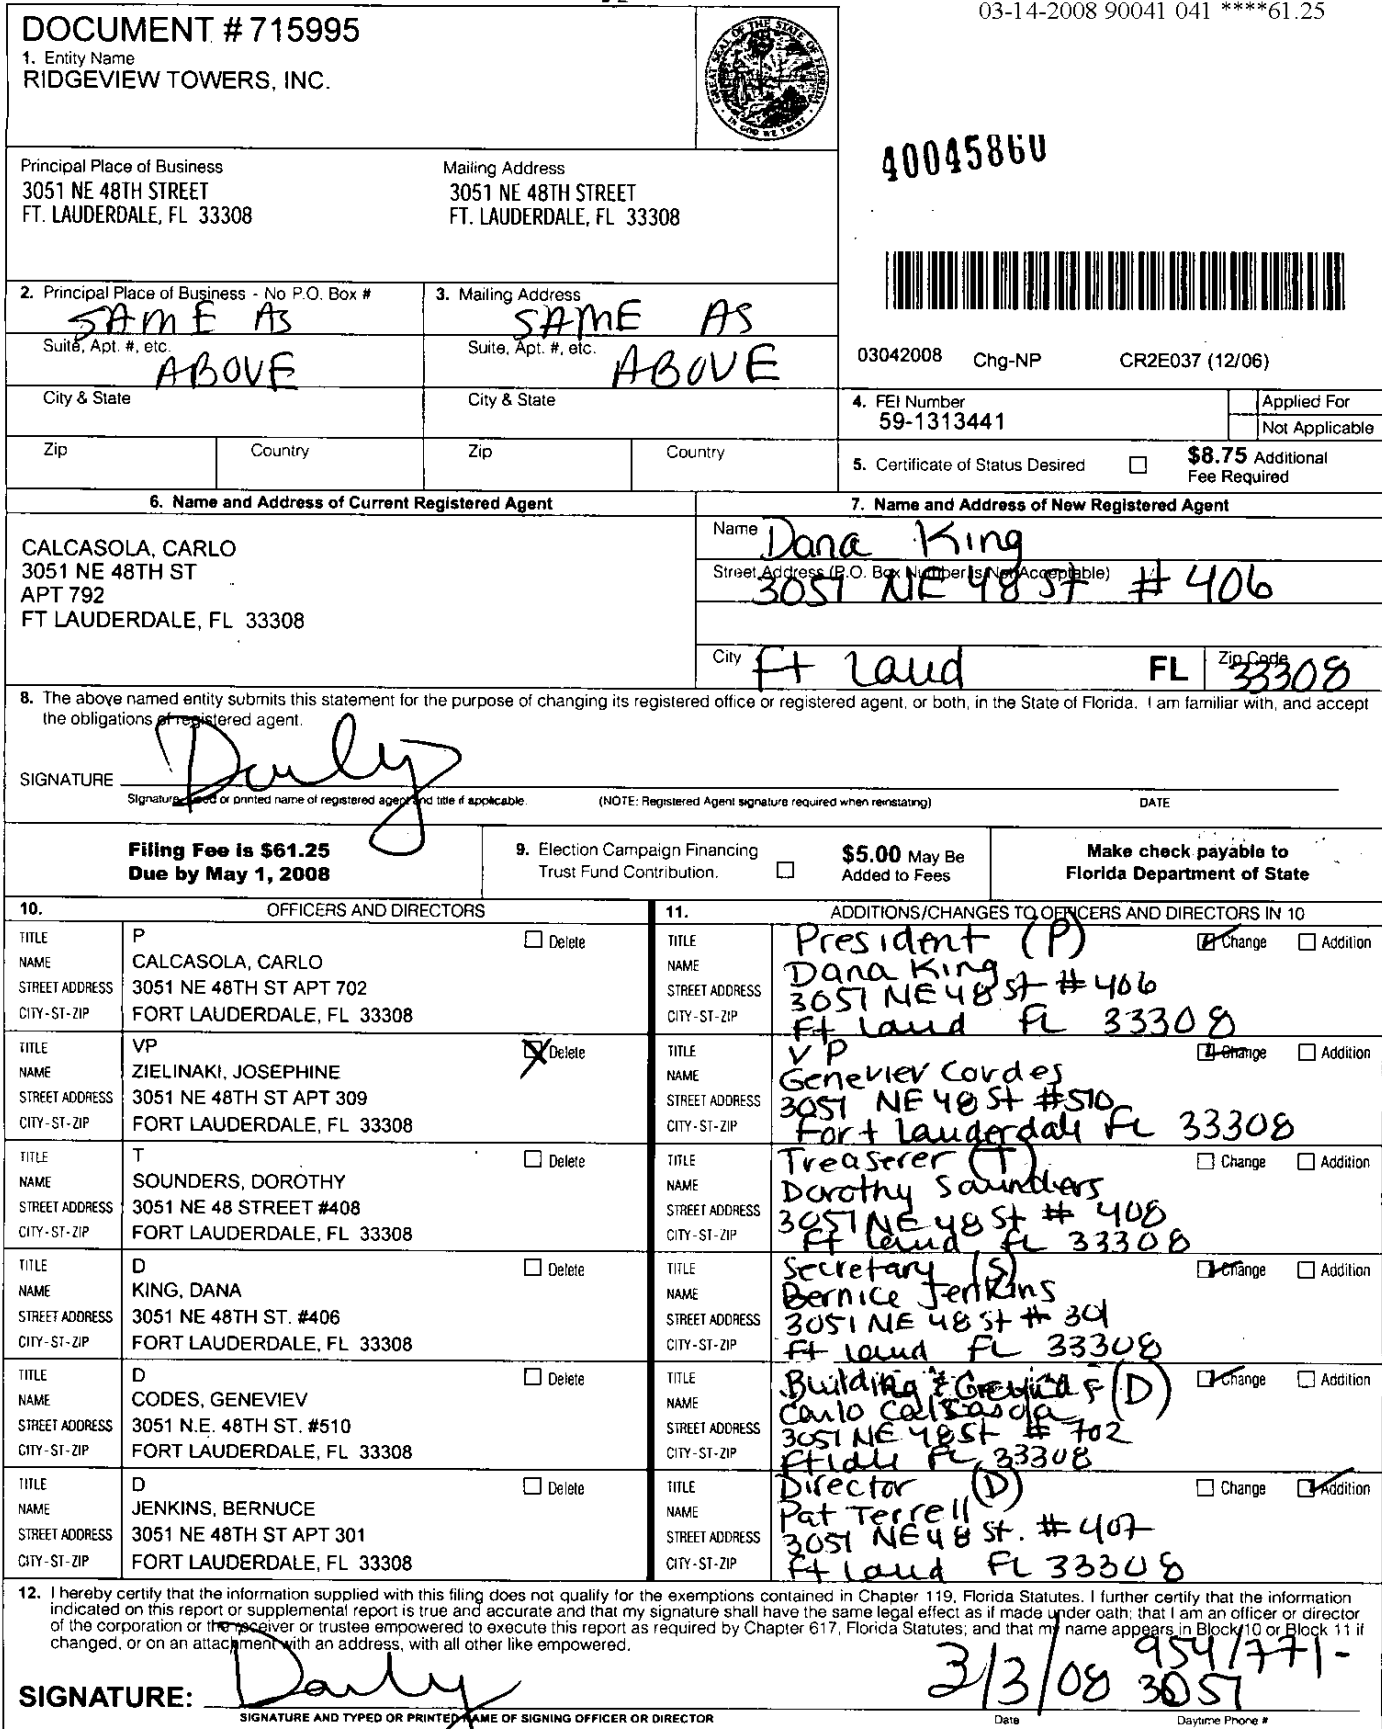 03-14-2008 90041 041 ****61.25
DOCUMENT # 715995
1. Entity Name
RIDGEVIEW TOWERS, INC.
GREAT SEAL OF THE STATE OF FLORIDA
IN GOD WE TRUST
40045860
Principal Place of Business
3051 NE 48TH STREET
FT. LAUDERDALE, FL 33308
Mailing Address
3051 NE 48TH STREET
FT. LAUDERDALE, FL 33308
2. Principal Place of Business - No P.O. Box #
SAME AS
Suite, Apt. #, etc.
ABOVE
City & State
Zip Country
3. Mailing Address
SAME AS
Suite, Apt. #, etc.
ABOVE
City & State
Zip Country
03042008 Chg-NP CR2E037 (12/06)
4. FEI Number
59-1313441
Applied For
Not Applicable
5. Certificate of Status Desired
$8.75 Additional
Fee Required
6. Name and Address of Current Registered Agent
CALCASOLA, CARLO
3051 NE 48TH ST
APT 792
FT LAUDERDALE, FL 33308
7. Name and Address of New Registered Agent
Name Dana King
Street Address (P.O. Box Number is Not Acceptable)
3051 NE 48 St # 406
City Ft Laud FL Zip Code 33308
8. The above named entity submits this statement for the purpose of changing its registered office or registered agent, or both, in the State of Florida. I am familiar with, and accept
the obligations of registered agent.
SIGNATURE
Signature, typed or printed name of registered agent and title if applicable. (NOTE: Registered Agent signature required when reinstating) DATE
Filing Fee is $61.25
Due by May 1, 2008
9. Election Campaign Financing
Trust Fund Contribution.
$5.00 May Be
Added to Fees
Make check payable to
Florida Department of State
10. OFFICERS AND DIRECTORS
TITLE P Delete
NAME CALCASOLA, CARLO
STREET ADDRESS 3051 NE 48TH ST APT 702
CITY-ST-ZIP FORT LAUDERDALE, FL 33308
TITLE VP Delete
NAME ZIELINAKI, JOSEPHINE
STREET ADDRESS 3051 NE 48TH ST APT 309
CITY-ST-ZIP FORT LAUDERDALE, FL 33308
TITLE T Delete
NAME SOUNDERS, DOROTHY
STREET ADDRESS 3051 NE 48 STREET #408
CITY-ST-ZIP FORT LAUDERDALE, FL 33308
TITLE D Delete
NAME KING, DANA
STREET ADDRESS 3051 NE 48TH ST. #406
CITY-ST-ZIP FORT LAUDERDALE, FL 33308
TITLE D Delete
NAME CODES, GENEVIEV
STREET ADDRESS 3051 N.E. 48TH ST. #510
CITY-ST-ZIP FORT LAUDERDALE, FL 33308
TITLE D Delete
NAME JENKINS, BERNUCE
STREET ADDRESS 3051 NE 48TH ST APT 301
CITY-ST-ZIP FORT LAUDERDALE, FL 33308
11. ADDITIONS/CHANGES TO OFFICERS AND DIRECTORS IN 10
TITLE President (P) Change Addition
NAME Dana King
STREET ADDRESS 3051 NE 48 St # 406
CITY-ST-ZIP Ft Laud FL 33308
TITLE VP Change Addition
NAME Geneviev Cordes
STREET ADDRESS 3051 NE 48 St #510
CITY-ST-ZIP Fort Lauderdale FL 33308
TITLE Treaserer (T) Change Addition
NAME Dorothy Saunders
STREET ADDRESS 3051 NE 48 St # 408
CITY-ST-ZIP Ft Laud FL 33308
TITLE Secretary (S) Change Addition
NAME Bernice Jenkins
STREET ADDRESS 3051 NE 48 St # 301
CITY-ST-ZIP Ft Laud FL 33308
TITLE Building & Grounds (D) Change Addition
NAME Carlo
STREET ADDRESS 3051 NE 48 St # 702
CITY-ST-ZIP FL 33308
TITLE Director (D) Change Addition
NAME Pat Terrell
STREET ADDRESS 3051 NE 48 St. # 407
CITY-ST-ZIP Ft Laud FL 33308
12. I hereby certify that the information supplied with this filing does not qualify for the exemptions contained in Chapter 119, Florida Statutes. I further certify that the information
indicated on this report or supplemental report is true and accurate and that my signature shall have the same legal effect as if made under oath; that I am an officer or director
of the corporation or the receiver or trustee empowered to execute this report as required by Chapter 617, Florida Statutes; and that my name appears in Block 10 or Block 11 if
changed, or on an attachment with an address, with all other like empowered.
SIGNATURE: 3/3/08 954/771-
3051
SIGNATURE AND TYPED OR PRINTED NAME OF SIGNING OFFICER OR DIRECTOR Date Daytime Phone #